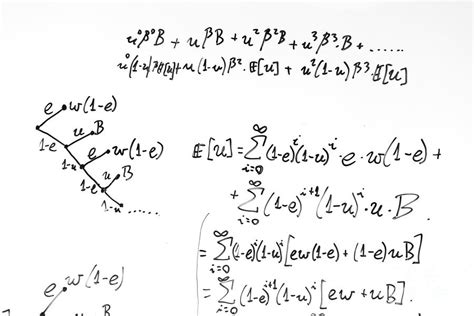 u⁰β⁰B + uβB + u²β²B + u³β³·B + ......
u⁰(1-u)β𝔼[u] + u(1-u)β²·𝔼[u] + u²(1-u)β³·𝔼[u]
e w(1-e)
1-e u B
1-u e w(1-e)
1-e u B
1-u ......
𝔼[u] = ∑_{i=0}^{∞} (1-e)^i (1-u)^i · e · w(1-e) +
+ ∑_{i=0}^{∞} (1-e)^{i+1} (1-u)^i · u · B
= ∑_{i=0}^{∞} (1-e)^i (1-u)^i [ew(1-e) + (1-e)uB]
= ∑_{i=0}^{∞} (1-e)^{i+1} (1-u)^i [ew + uB].
e w(1-e)
B